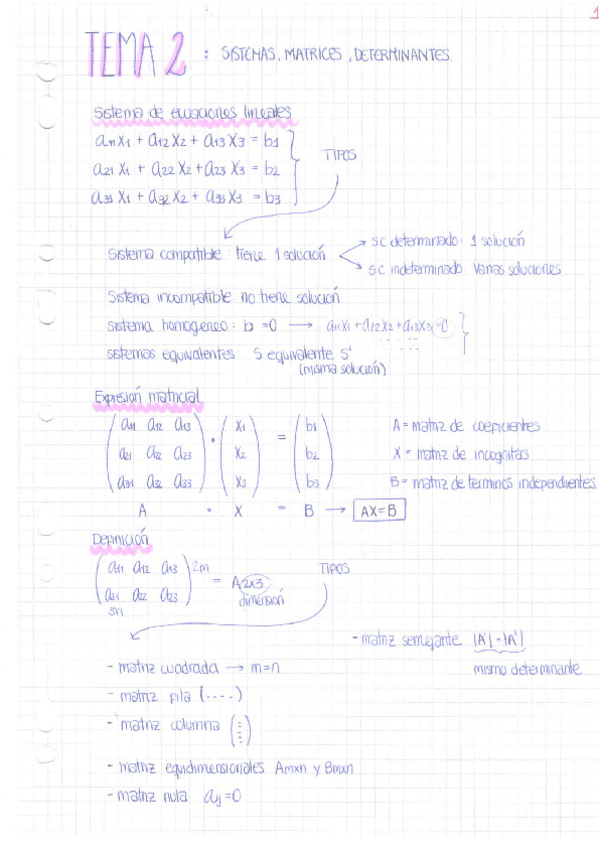 1
TEMA 2 : SISTEMAS, MATRICES, DETERMINANTES.
Sistema de ecuaciones lineales
a11x1 + a12x2 + a13x3 = b1
a21x1 + a22x2 + a23x3 = b2
a31x1 + a32x2 + a33x3 = b3
TIPOS
Sistema compatible: tiene 1 solución
sc determinado: 1 solución
sc indeterminado Varias soluciones
Sistema incompatible no tiene solución
sistema homogeneo: b = 0 → a11x1 + a12x2 + a13x3 = 0
sistemas equivalentes S equivalente S'
(misma solución)
Expresión matricial
( a11 a12 a13 ) ( x1 ) ( b1 )
( a21 a22 a23 ) · ( x2 ) = ( b2 )
( a31 a32 a33 ) ( x3 ) ( b3 )
A · X = B → AX=B
A = matriz de coeficientes
X = matriz de incognitas
B = matriz de terminos independientes
Definición
( a11 a12 a13 ) 2m
( a21 a22 a23 ) = A2x3
3n
dimensión
TIPOS
- matriz semejante |A| - |A'|
mismo determinante
- matriz cuadrada → m=n
- matriz fila (----)
- matriz columna (⋮)
- matriz equidimensionales Amxn y Bmxn
- matriz nula aij = 0